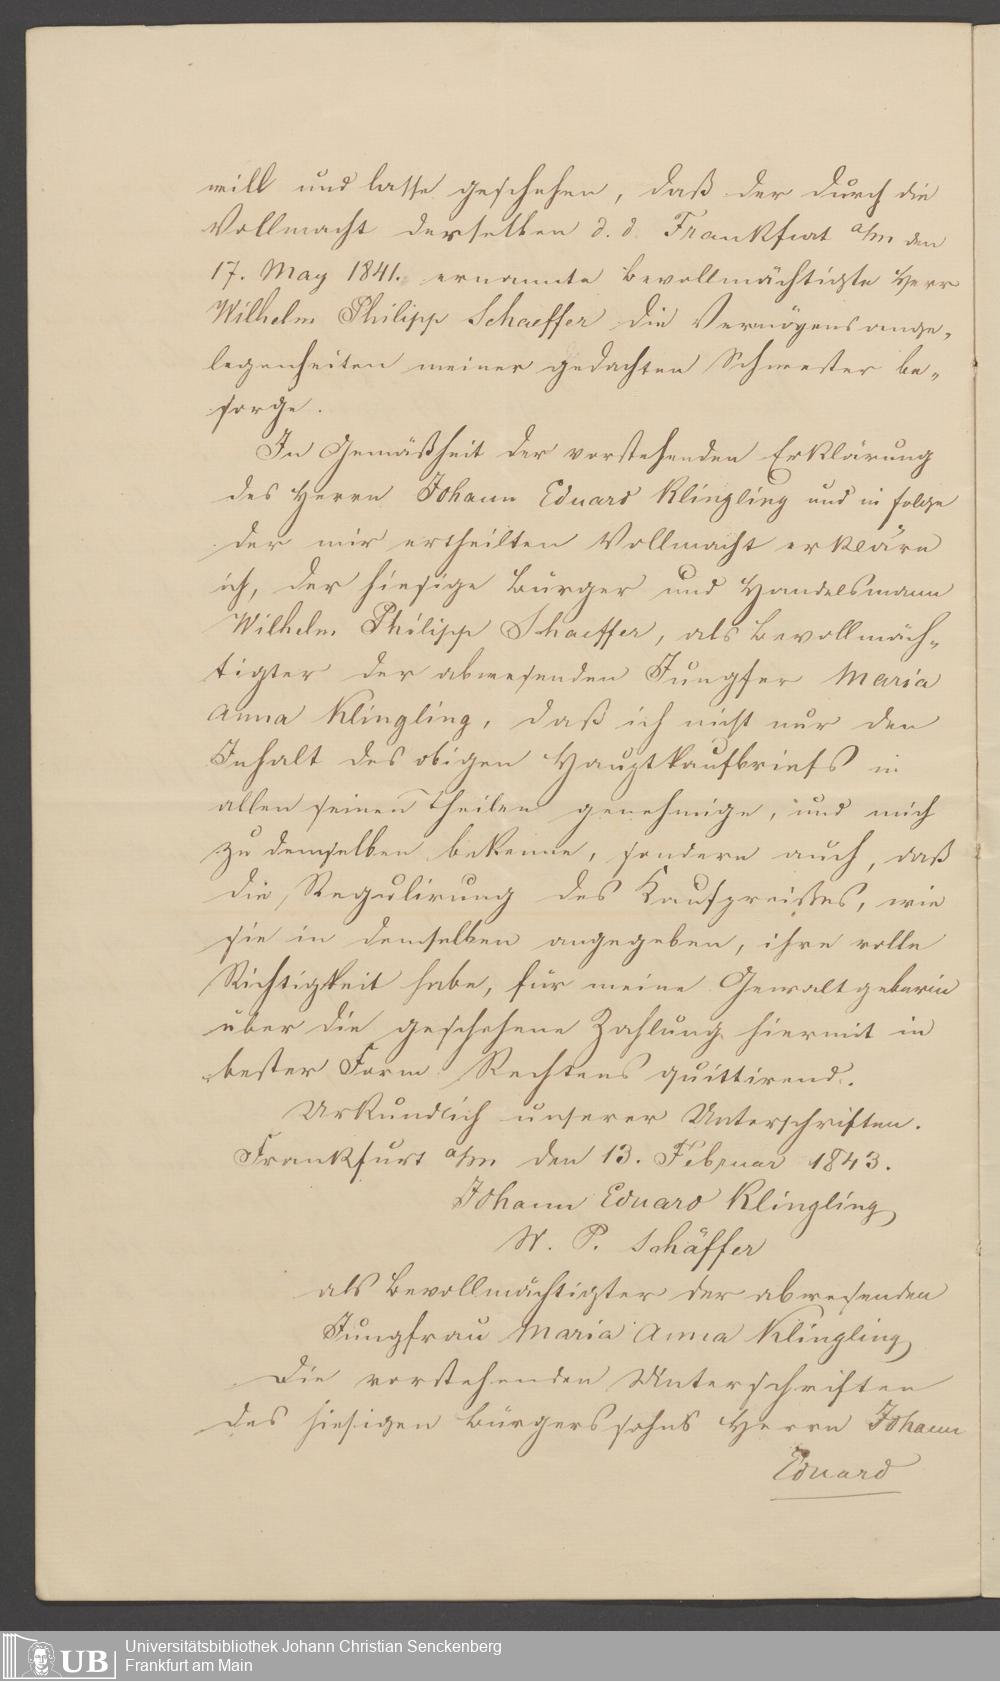 will und lasse geschehen, daß der durch die
Vollmacht derselben d. d. Frankfurt a/m den
17. May 1841. ernannte Bevollmächtigte Herr
Wilhelm Philipp Schaeffer die Vermögensange-
legenheiten meiner gedachten Schwester be-
sorge.
In Gemäßheit der vorstehenden Erklärung
des Herrn Johann Eduard Klingling und in folge
der mir ertheilten Vollmacht erkläre
ich, der hiesige Bürger und Handelsmann
Wilhelm Philipp Schaeffer, als Bevollmäch-
tigter der abwesenden Jungfer Maria
Anna Klingling, daß ich nicht nur den
Inhalt des obigen Hauptkaufbriefs in
allen seinen Theilen genehmige, und mich
zu demselben bekenne, sondern auch, daß
die Regulirung des Kaufpreißes, wie
sie in demselben angegeben, ihre volle
Richtigkeit habe, für meine Gewaltgeberin
über die geschehene Zahlung hiermit in
bester Form Rechtens quittirend.
Urkundlich unserer Unterschriften.
Frankfurt a/m den 13. Februar 1843.
Johann Eduard Klingling
W. P. Schäffer
als Bevollmächtigter der abwesenden
Jungfrau Maria Anna Klingling
Die vorstehenden Unterschriften
des hiesigen Bürgerssohns Herrn Johann
Eduard
UB
Universitätsbibliothek Johann Christian Senckenberg
Frankfurt am Main